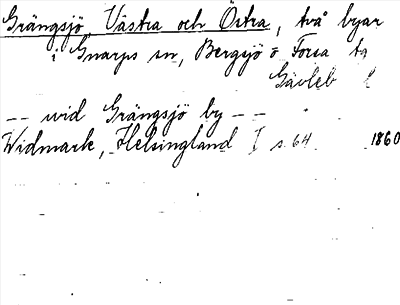 Grängsjö, Västra och Östra, två byar
i Gnarps sn, Bergsjö o Forsa tg
Gävleb l
-- wid Grängsjö by --
Widmark, Helsingland I s. 64. 1860